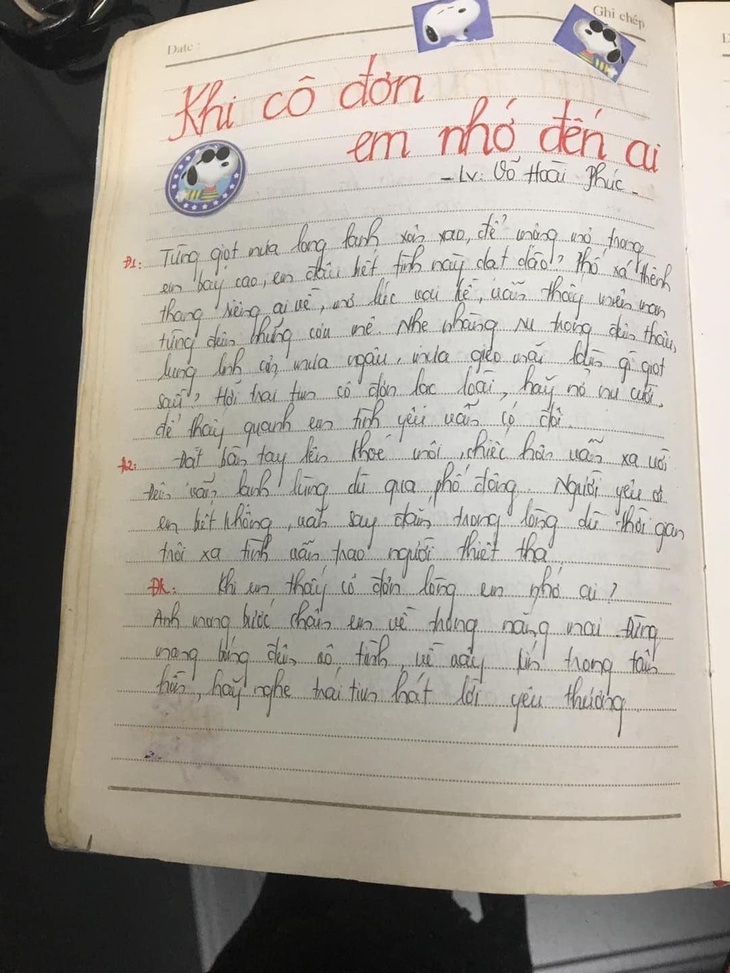 Ghi chép
Date :
Khi cô đơn
em nhớ đến ai
- LV: Võ Hoài Phúc -
Đ1: Từng giọt mưa long lanh xôn xao, để mộng mơ trong
em bay cao, em dấu hết tình này dạt dào? Phố xá thênh
thang riêng ai về, mơ lúc vai kề, vẫn thấy miên man
từng đêm những cơn mê. Nhẹ nhàng ru trong đêm thâu,
lung linh cơn mưa ngâu, mưa gieo mãi đến gì giọt
sầu? Hỡi trai tim cô đơn lạc loài, hãy nở nụ cười,
để thấy quanh em tình yêu vẫn có đôi.
Đ2: Đặt bàn tay lên khoé môi, chiếc hôn vẫn xa vời
Đêm vẫn lạnh lùng dù qua phố đông. Người yêu ơi
em biết không, vẫn say đắm trong lòng dù thời gan
trôi xa tình vẫn trao người thiết tha.
Đk: Khi em thấy cô đơn lòng em nhớ ai?
Anh mong bước chân em về trong nắng mai. Đừng
mang bóng đêm vô tình, về vây kín trong tâm
hồn, hãy nghe trái tim hát lời yêu thương